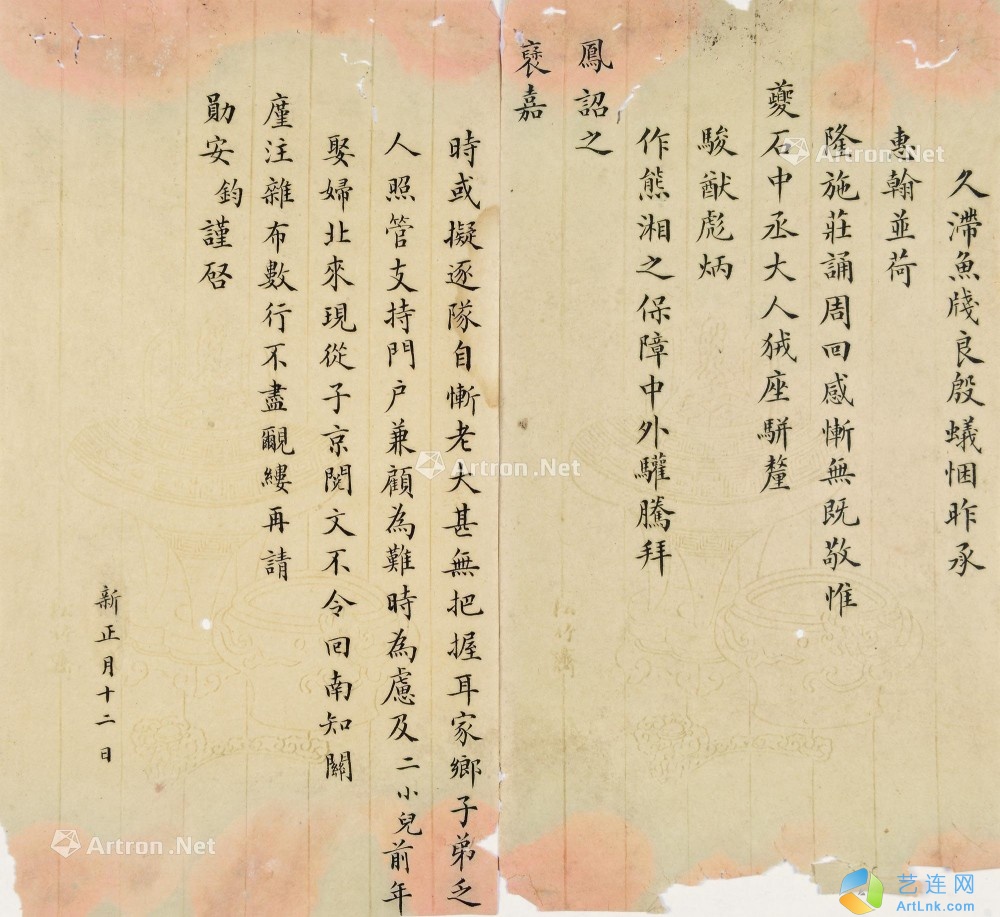 久滯魚牋良殷蟻悃昨承
惠翰並荷
隆施莊誦周回感慚無既敬惟
夔石中丞大人猿座駢釐
駿猷彪炳
作熊湘之保障中外驩騰拜
鳳詔之
襃嘉
時或擬逐隊自慚老大甚無把握耳家鄉子弟乏
人照管支持門户兼顧為難時為慮及二小兒前年
娶婦北來現從子京閱文不令回南知關
廑注雜布數行不盡覼縷再請
勛安 鈞謹啓
新正月十二日
Artron.Net
Artron.Net
Artron.Net
艺连网
ArtLnk.com